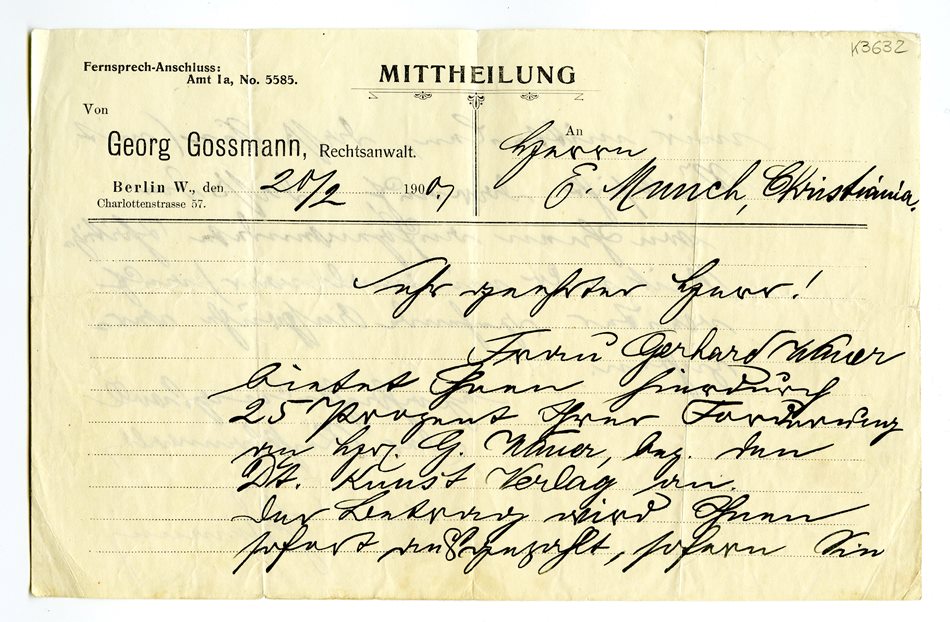 K3632
Fernsprech-Anschluss:
Amt Ia, No. 5585.
MITTHEILUNG
Von
An
Georg Gossmann, Rechtsanwalt.
Herrn
Berlin W., den 20/2 1907.
E. Munch, Christiania.
Charlottenstrasse 57.
Sehr geehrter Herr!
Frau Gerhard
bietet Ihnen hierdurch
25 Prozent Ihrer Forderung
an G. bez. den
Dt. Kunst Verlag an.
Der Betrag wird Ihnen
sofort ausgezahlt, sofern Sie